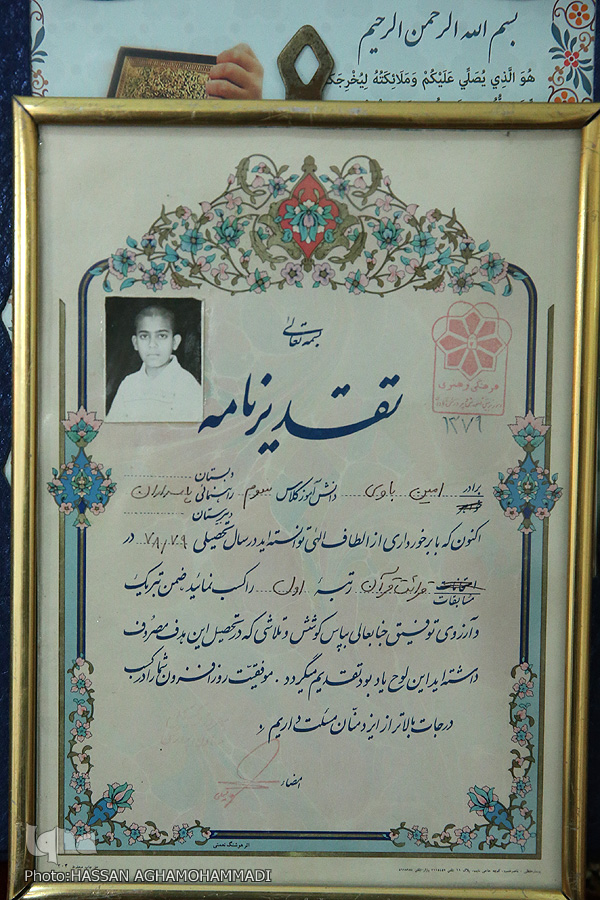 بسم الله الرحمن الرحیم
هُوَ الَّذِي يُصَلِّي عَلَيْكُمْ وَمَلَائِكَتُهُ لِيُخْرِجَكُم
بسمه تعالی
فرهنگی و هنری
۱۳۷۹
تقدیرنامه
دبستان
برادر امین باوی دانش‌آموز کلاس سوم راهنمائی پاسداران
دبیرستان
اکنون که با برخورداری از الطاف الهی توانسته‌اید در سال تحصیلی ۷۸/۷۹ در
امتحانات قرائت قرآن رتبهٔ اول را کسب نمائید، ضمن تبریک
مسابقات
و آرزوی توفیق جنابعالی بپاس کوشش و تلاشی که در تحصیل این هدف مصروف
داشته‌اید این لوح یادبود تقدیم میگردد. موفقیت روزافزون شما را در کسب
درجات بالاتر از ایزد منان مسئلت داریم.
امضاء
اثر هوشنگ نعمتی
iqna
Photo:HASSAN AGHAMOHAMMADI